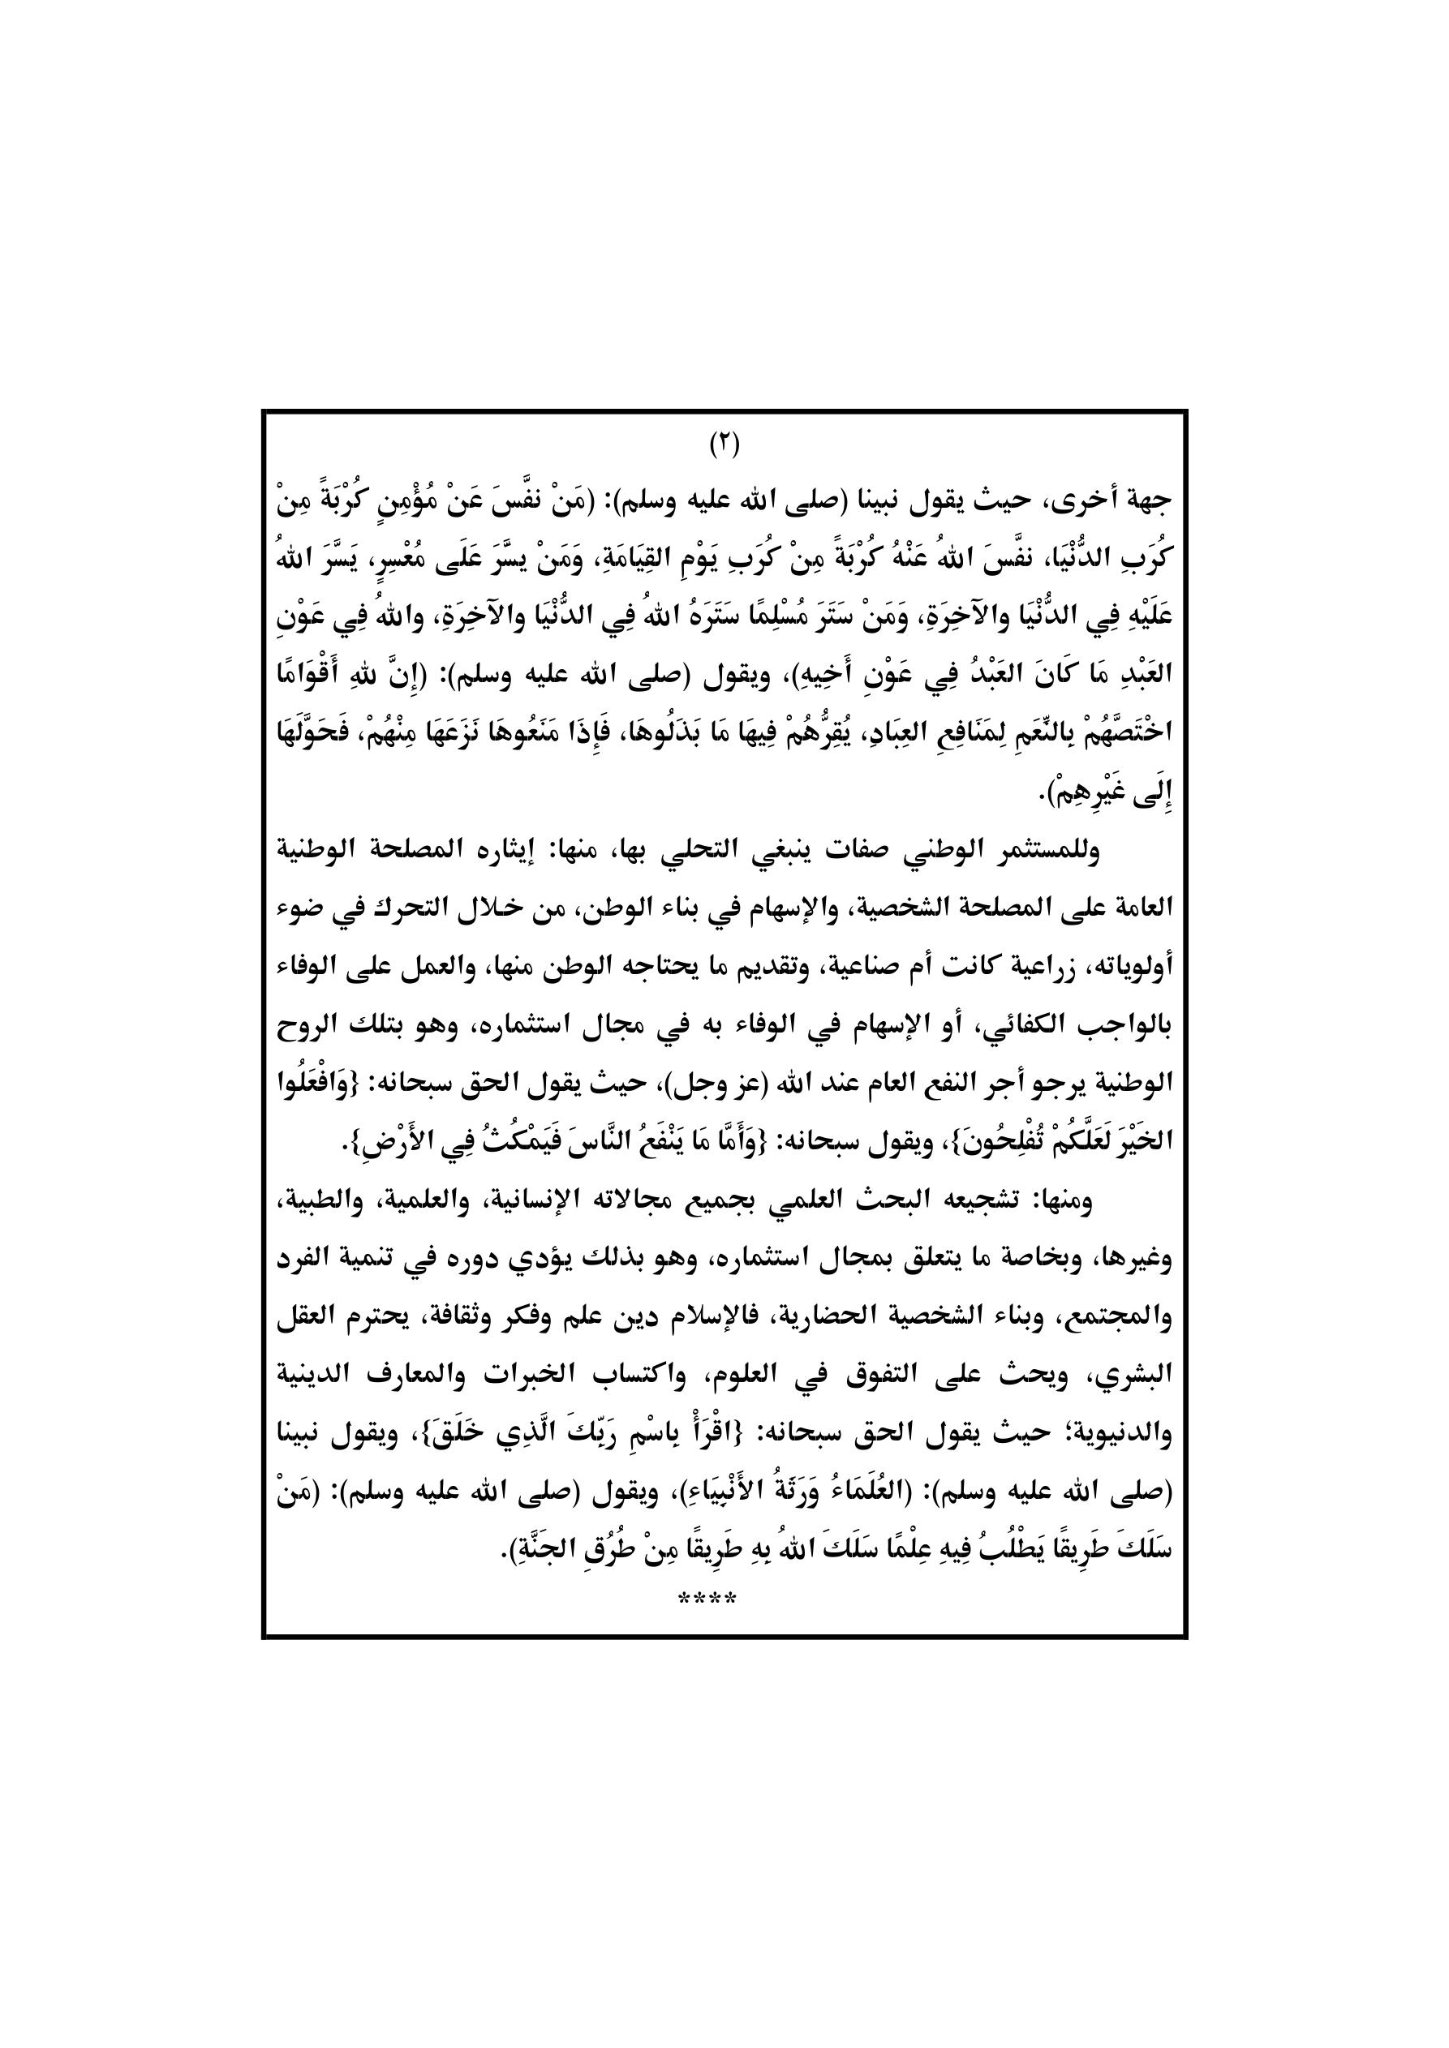 (٢)
جهة أخرى، حيث يقول نبينا (صلى الله عليه وسلم): (مَنْ نفَّسَ عَنْ مُؤْمِنٍ كُرْبَةً مِنْ
كُرَبِ الدُّنْيَا، نفَّسَ اللهُ عَنْهُ كُرْبَةً مِنْ كُرَبِ يَوْمِ القِيَامَةِ، وَمَنْ يسَّرَ عَلَى مُعْسِرٍ، يَسَّرَ اللهُ
عَلَيْهِ فِي الدُّنْيَا والآخِرَةِ، وَمَنْ سَتَرَ مُسْلِمًا سَتَرَهُ اللهُ فِي الدُّنْيَا والآخِرَةِ، واللهُ فِي عَوْنِ
العَبْدِ مَا كَانَ العَبْدُ فِي عَوْنِ أَخِيهِ)، ويقول (صلى الله عليه وسلم): (إِنَّ للهِ أَقْوَامًا
اخْتَصَّهُمْ بِالنِّعَمِ لِمَنَافِعِ العِبَادِ، يُقِرُّهُمْ فِيهَا مَا بَذَلُوهَا، فَإِذَا مَنَعُوهَا نَزَعَهَا مِنْهُمْ، فَحَوَّلَهَا
إِلَى غَيْرِهِمْ).
وللمستثمر الوطني صفات ينبغي التحلي بها، منها: إيثاره المصلحة الوطنية
العامة على المصلحة الشخصية، والإسهام في بناء الوطن، من خلال التحرك في ضوء
أولوياته، زراعية كانت أم صناعية، وتقديم ما يحتاجه الوطن منها، والعمل على الوفاء
بالواجب الكفائي، أو الإسهام في الوفاء به في مجال استثماره، وهو بتلك الروح
الوطنية يرجو أجر النفع العام عند الله (عز وجل)، حيث يقول الحق سبحانه: {وَافْعَلُوا
الخَيْرَ لَعَلَّكُمْ تُفْلِحُونَ}، ويقول سبحانه: {وَأَمَّا مَا يَنْفَعُ النَّاسَ فَيَمْكُثُ فِي الأَرْضِ}.
ومنها: تشجيعه البحث العلمي بجميع مجالاته الإنسانية، والعلمية، والطبية،
وغيرها، وبخاصة ما يتعلق بمجال استثماره، وهو بذلك يؤدي دوره في تنمية الفرد
والمجتمع، وبناء الشخصية الحضارية، فالإسلام دين علم وفكر وثقافة، يحترم العقل
البشري، ويحث على التفوق في العلوم، واكتساب الخبرات والمعارف الدينية
والدنيوية؛ حيث يقول الحق سبحانه: {اقْرَأْ بِاسْمِ رَبِّكَ الَّذِي خَلَقَ}، ويقول نبينا
(صلى الله عليه وسلم): (العُلَمَاءُ وَرَثَةُ الأَنْبِيَاءِ)، ويقول (صلى الله عليه وسلم): (مَنْ
سَلَكَ طَرِيقًا يَطْلُبُ فِيهِ عِلْمًا سَلَكَ اللهُ بِهِ طَرِيقًا مِنْ طُرُقِ الجَنَّةِ).
****